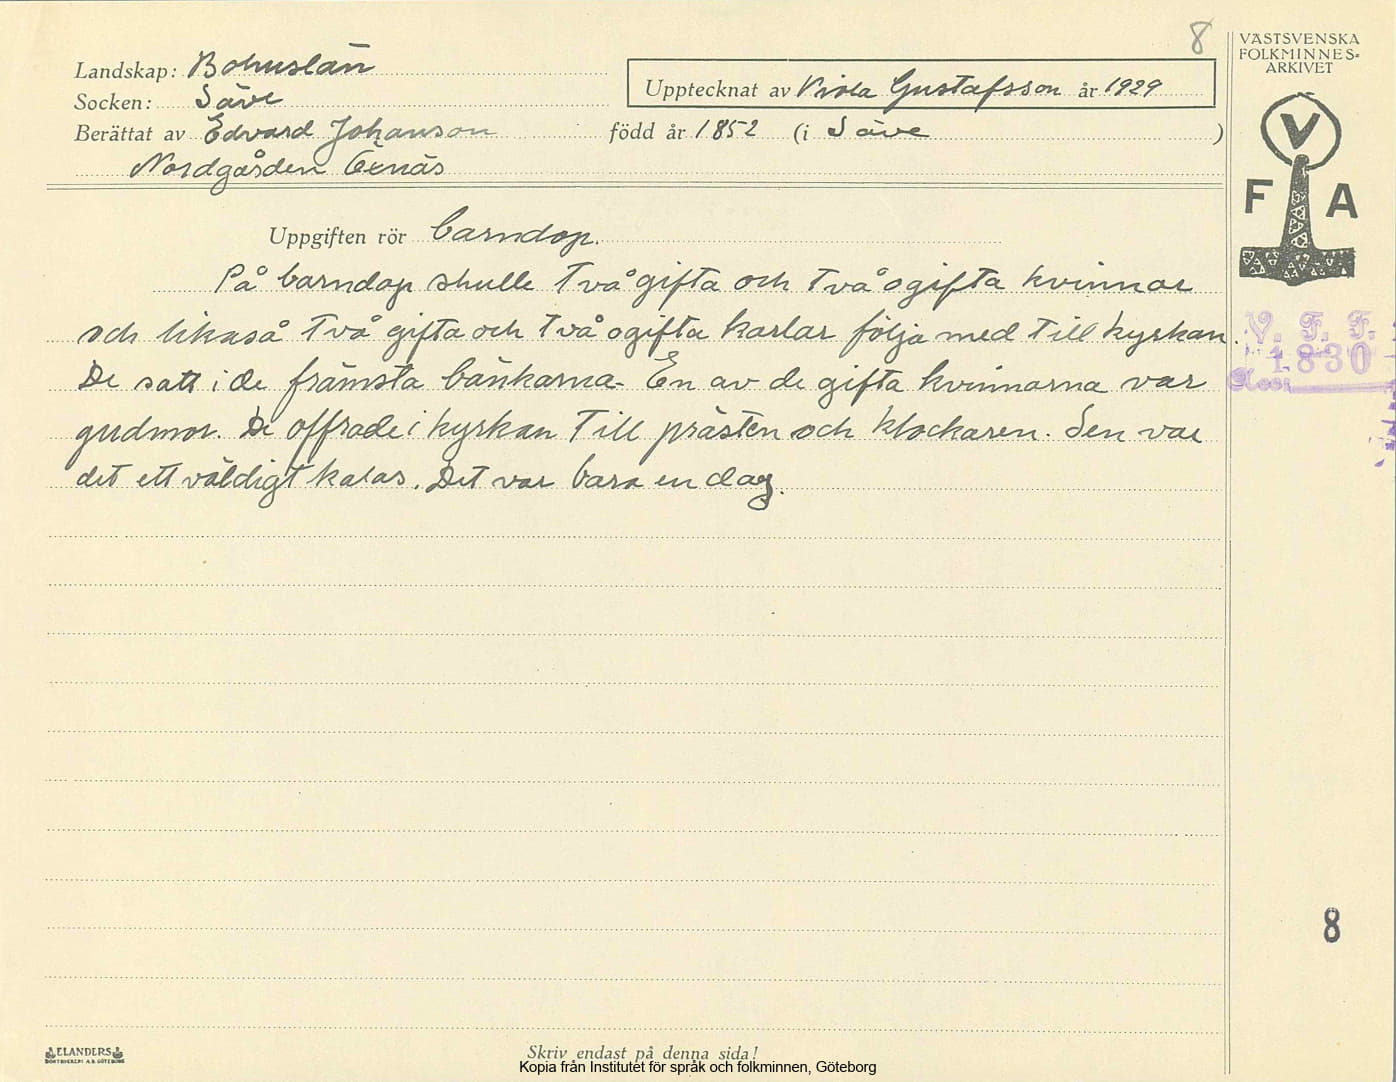 8
VÄSTSVENSKA
FOLKMINNES-
ARKIVET
Landskap: Bohuslän
Socken: Säve
Upptecknat av Viola Gustafsson år 1929
Berättat av Edvard Johanson född år 1852 (i Säve )
Nordgården Exnäs
V
F A
Uppgiften rör barndop.
På barndop skulle två gifta och två ogifta kvinnor
och likaså två gifta och två ogifta karlar följa med till kyrkan.
De satt i de främsta bänkarna. En av de gifta kvinnorna var
gudmor. De offrade i kyrkan till prästen och klockaren. Sen var
det ett väldigt kalas. Det var bara en dag.
V. F. F.
1830
8
ELANDERS
BOKTRYCKERI A.B. GÖTEBORG
Skriv endast på denna sida!
Kopia från Institutet för språk och folkminnen, Göteborg